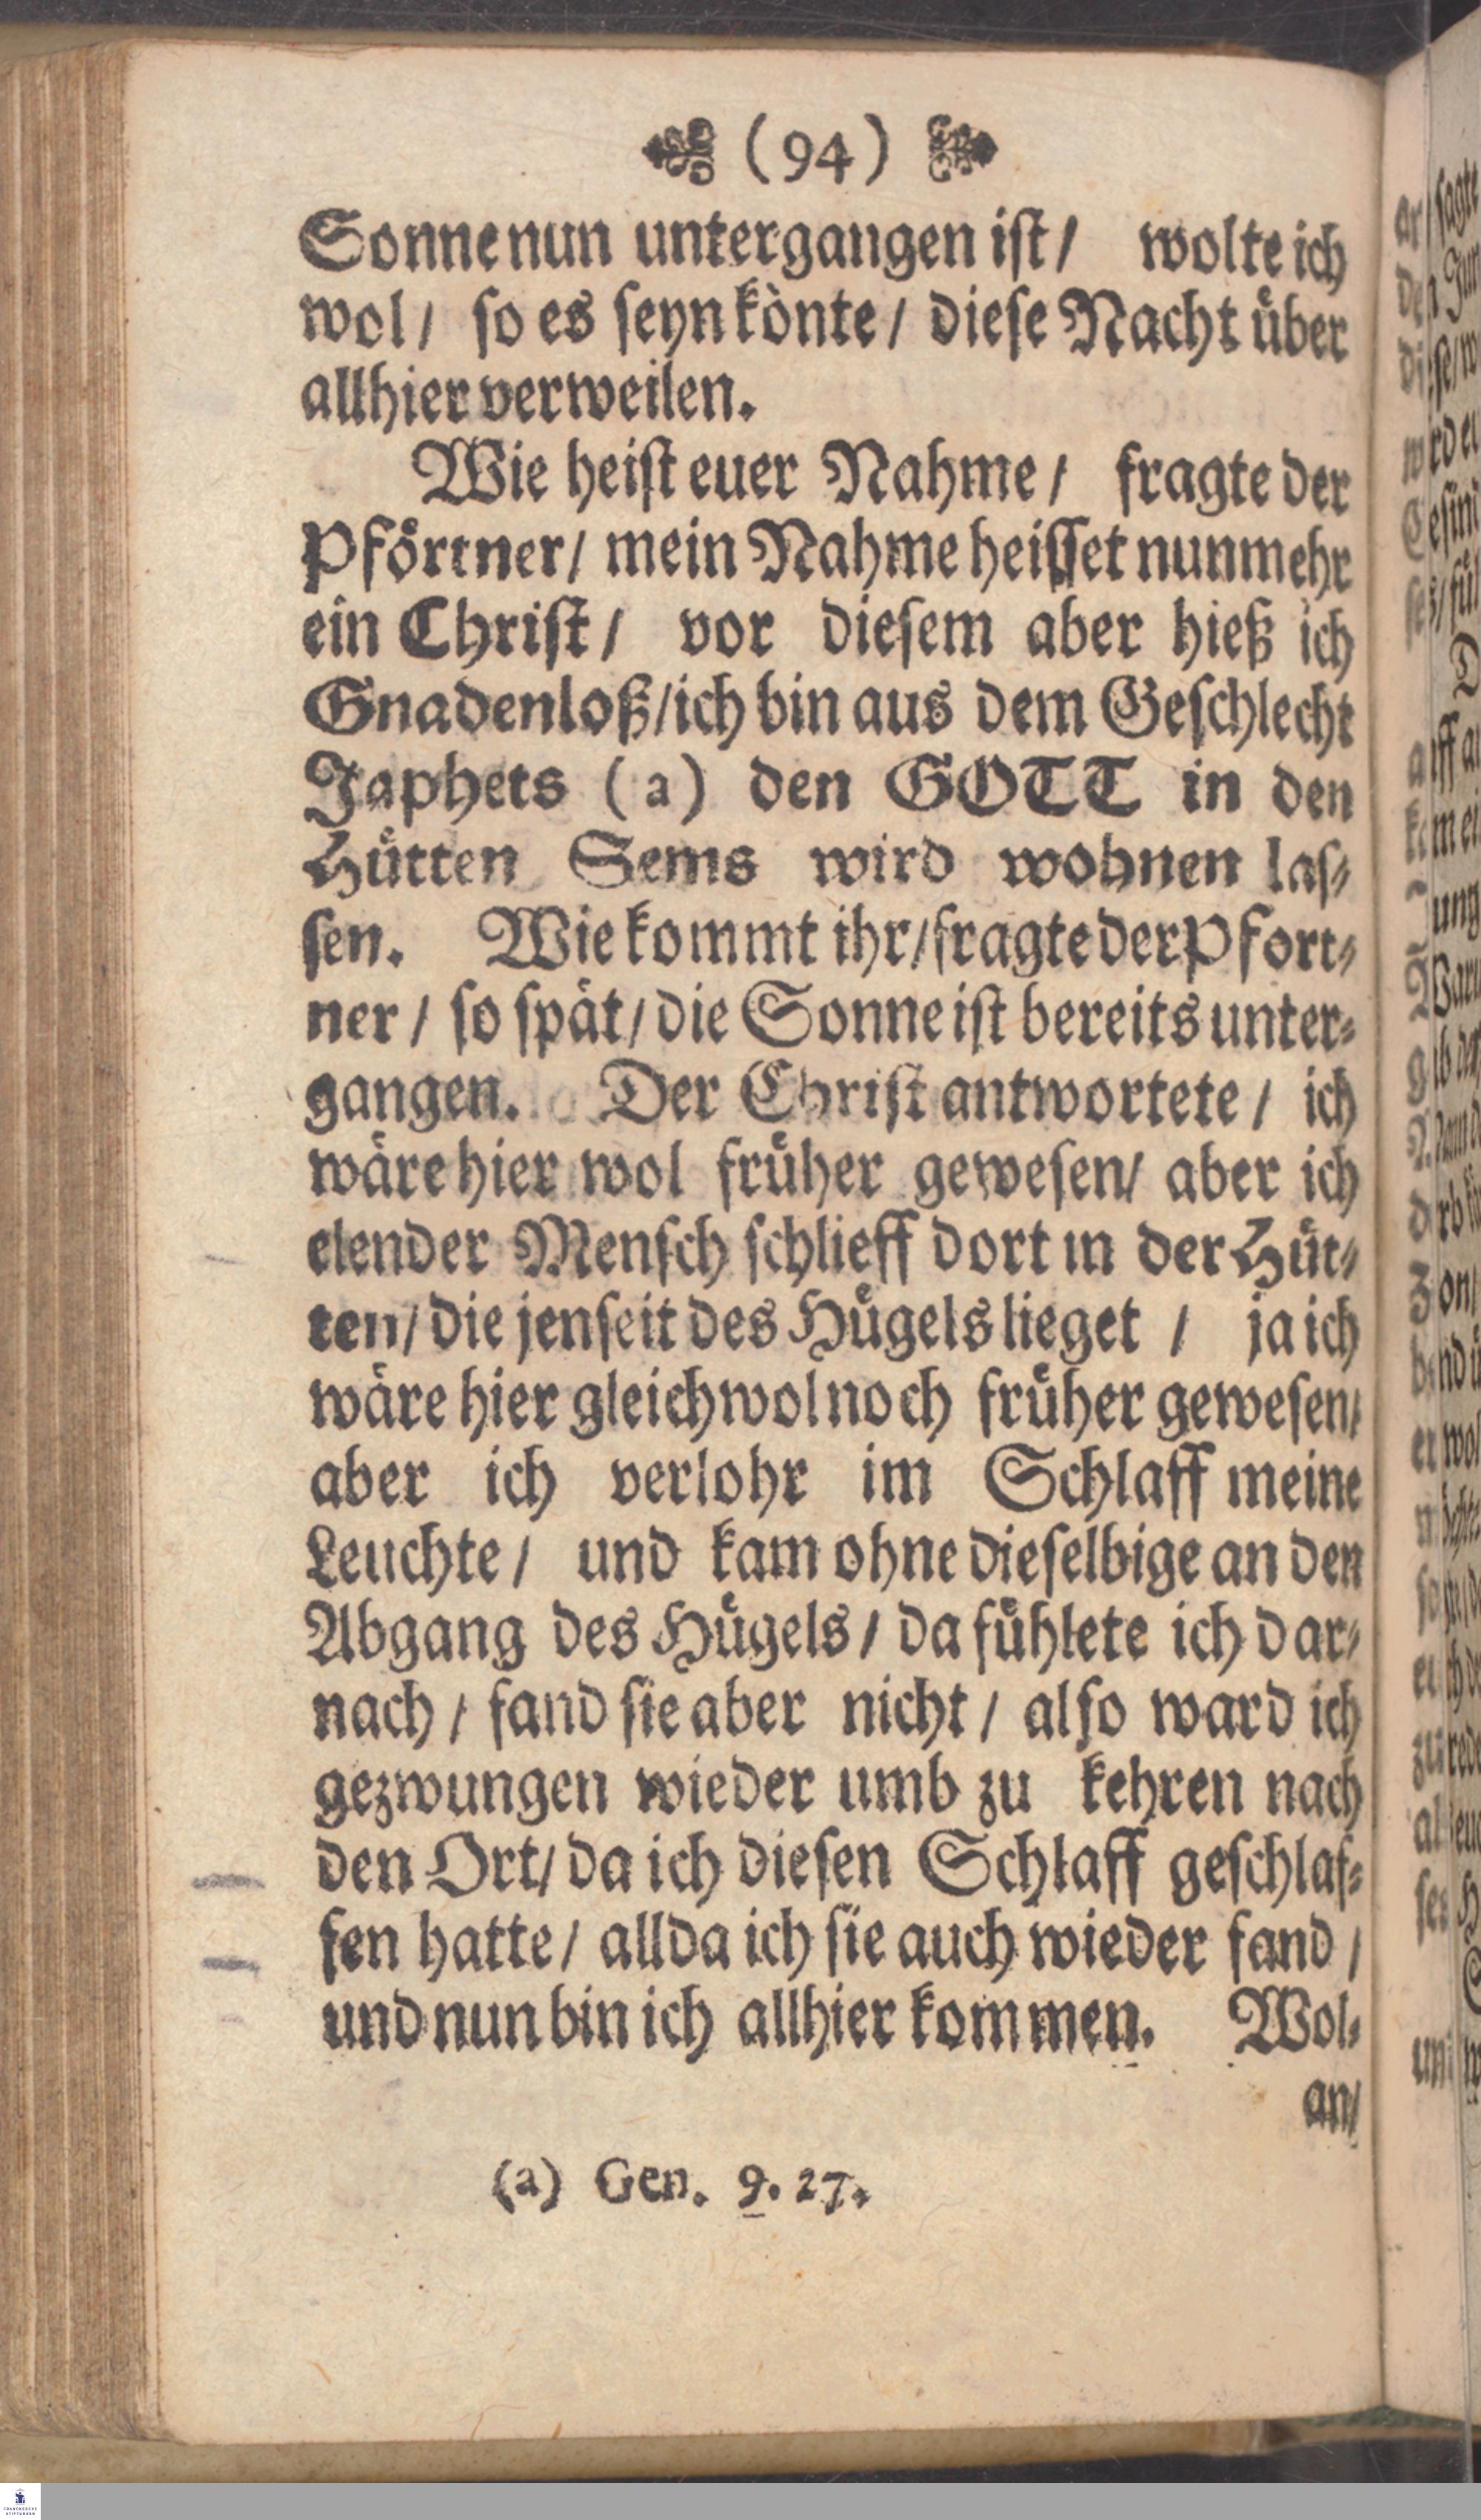 (94)
Sonne nun untergangen iſt / wolte ich
wol / ſo es ſeyn kònte / dieſe Nacht uͤber
allhier verweilen.
Wie heiſt euer Nahme / fragte der
Pfoͤrtner / mein Nahme heiſſet nunmehr
ein Chriſt / vor dieſem aber hieß ich
Gnadenloß / ich bin aus dem Geſchlecht
Japhets (a) den GOTT in den
Huͤtten Sems wird wohnen laſ⸗
ſen. Wie kommt ihr / fragte der Pfort⸗
ner / ſo ſpaͤt / die Sonne iſt bereits unter⸗
gangen. Der Chriſt antwortete / ich
waͤre hier wol fruͤher geweſen / aber ich
elender Menſch ſchlieff dort in der Huͤt⸗
ten / die jenſeit des Huͤgels lieget / ja ich
waͤre hier gleichwol noch fruͤher geweſen /
aber ich verlohr im Schlaff meine
Leuchte / und kam ohne dieſelbige an den
Abgang des Huͤgels / da fuͤhlete ich dar⸗
nach / fand ſie aber nicht / alſo ward ich
gezwungen wieder umb zu kehren nach
den Ort / da ich dieſen Schlaff geſchlaf⸗
fen hatte / allda ich ſie auch wieder fand /
und nun bin ich allhier kommen. Wol⸗
an /
(a) Gen. 9. 27.
FRANCKESCHE
STIFTUNGEN